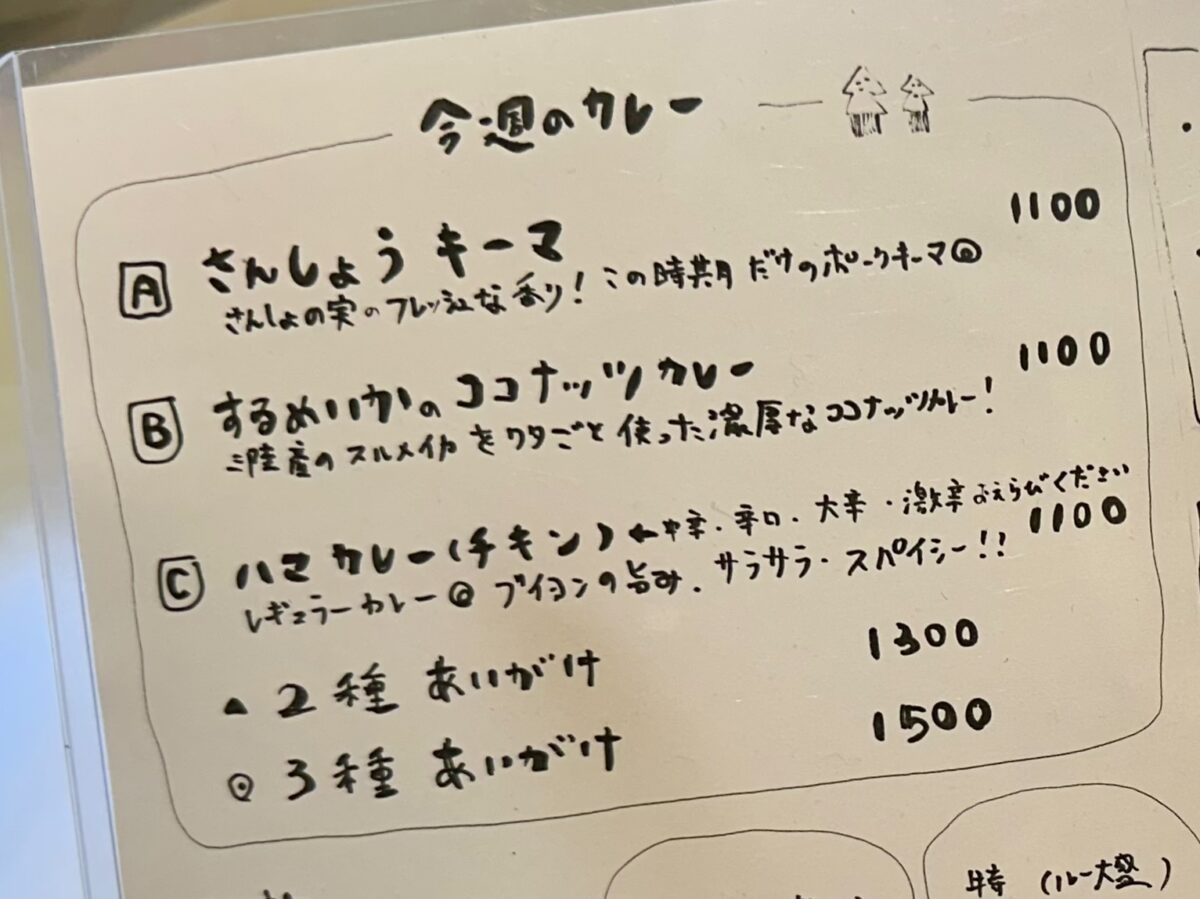 今週のカレー
A さんしょう キーマ 1100
さんしょの実のフレッシュな香り！この時期だけのポークキーマ◎
B するめいかの ココナッツカレー 1100
三陸産のスルメイカをワタごと使った濃厚なココナッツカレー！
C ハマカレー(チキン) ←中辛・辛口・大辛・激辛おえらびください
1100
レギュラーカレー◎ ブイヨンの旨み、サラサラ・スパイシー！！
・2種 あいがけ 1300
◎3種 あいがけ 1500
特 (ルー大盛)